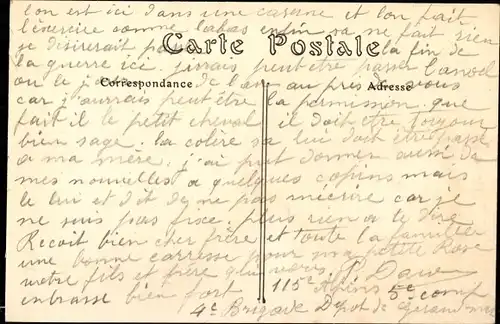 lon est ici dans une caserne et lon fait
l'exercice comme labas enfin sa ne fait rien
je disirerait
Carte Postale
la fin de
la guerre ici jirais peut être passer
Correspondance
Adresse
ou le de l'an au près de vous
car j'aurrais peut être la permission. que
fait il le petit cheval il doit être toujour
bien sage. la colère sa lui doit être passé
a ma mère. j'ai put donner aussi de
mes nouvelles a quelques copins mais
je lui et dit de ne pas mécrire car je
ne suis pas fixe. plus rien a te dire
Recoit bien cher frère et toute la famille
une bonne caresse pour ma petite Rose
votre fils et frère qui vous
embrasse bien fort
115e Alpins 5e comp
4e Brigade Depot de